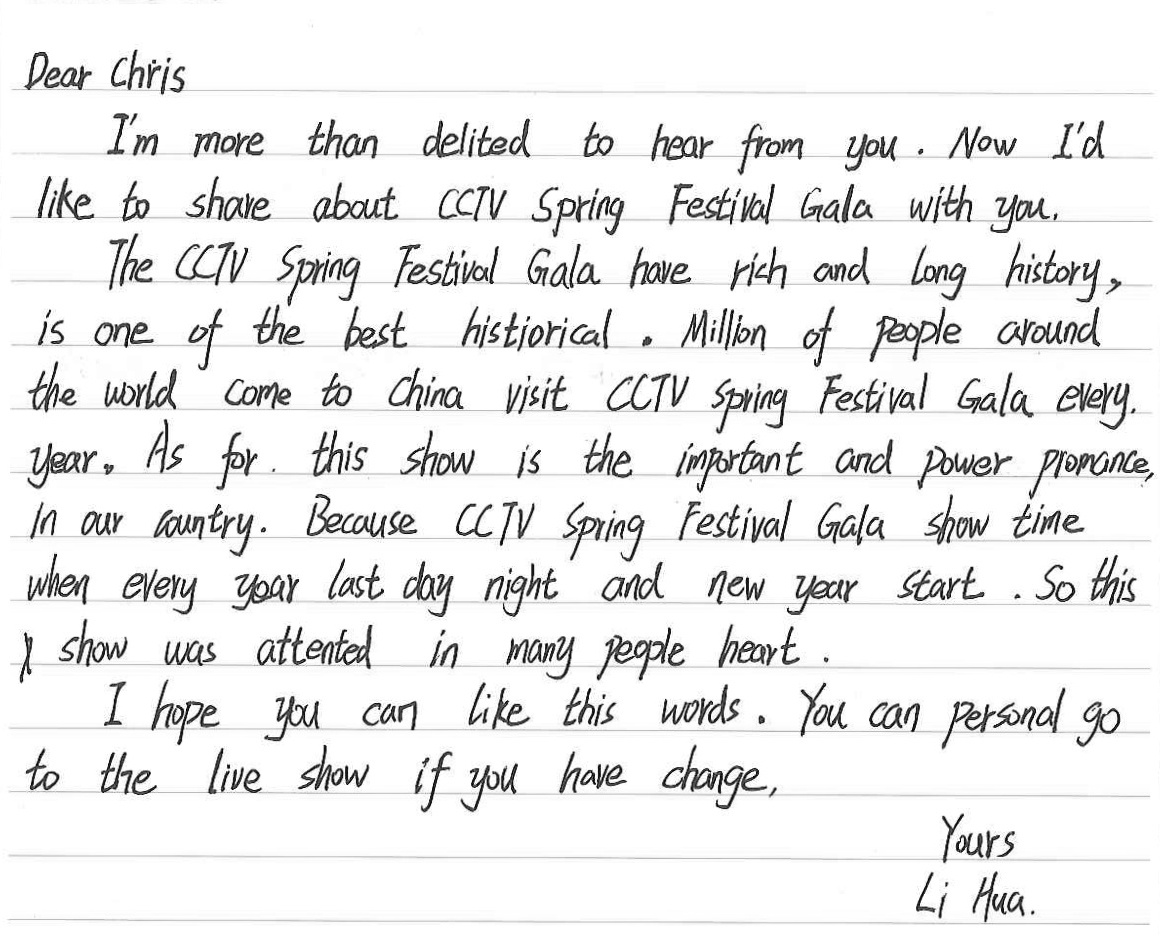 Dear Chris
I'm more than delited to hear from you. Now I'd
like to share about CCTV Spring Festival Gala with you.
The CCTV Spring Festival Gala have rich and long history,
is one of the best histiorical. Million of people around
the world come to China visit CCTV Spring Festival Gala every.
year. As for. this show is the important and power promance,
in our country. Because CCTV Spring Festival Gala show time
when every year last day night and new year start. So this
show was attented in many people heart.
I hope you can like this words. You can personal go
to the live show if you have change,
Yours
Li Hua.